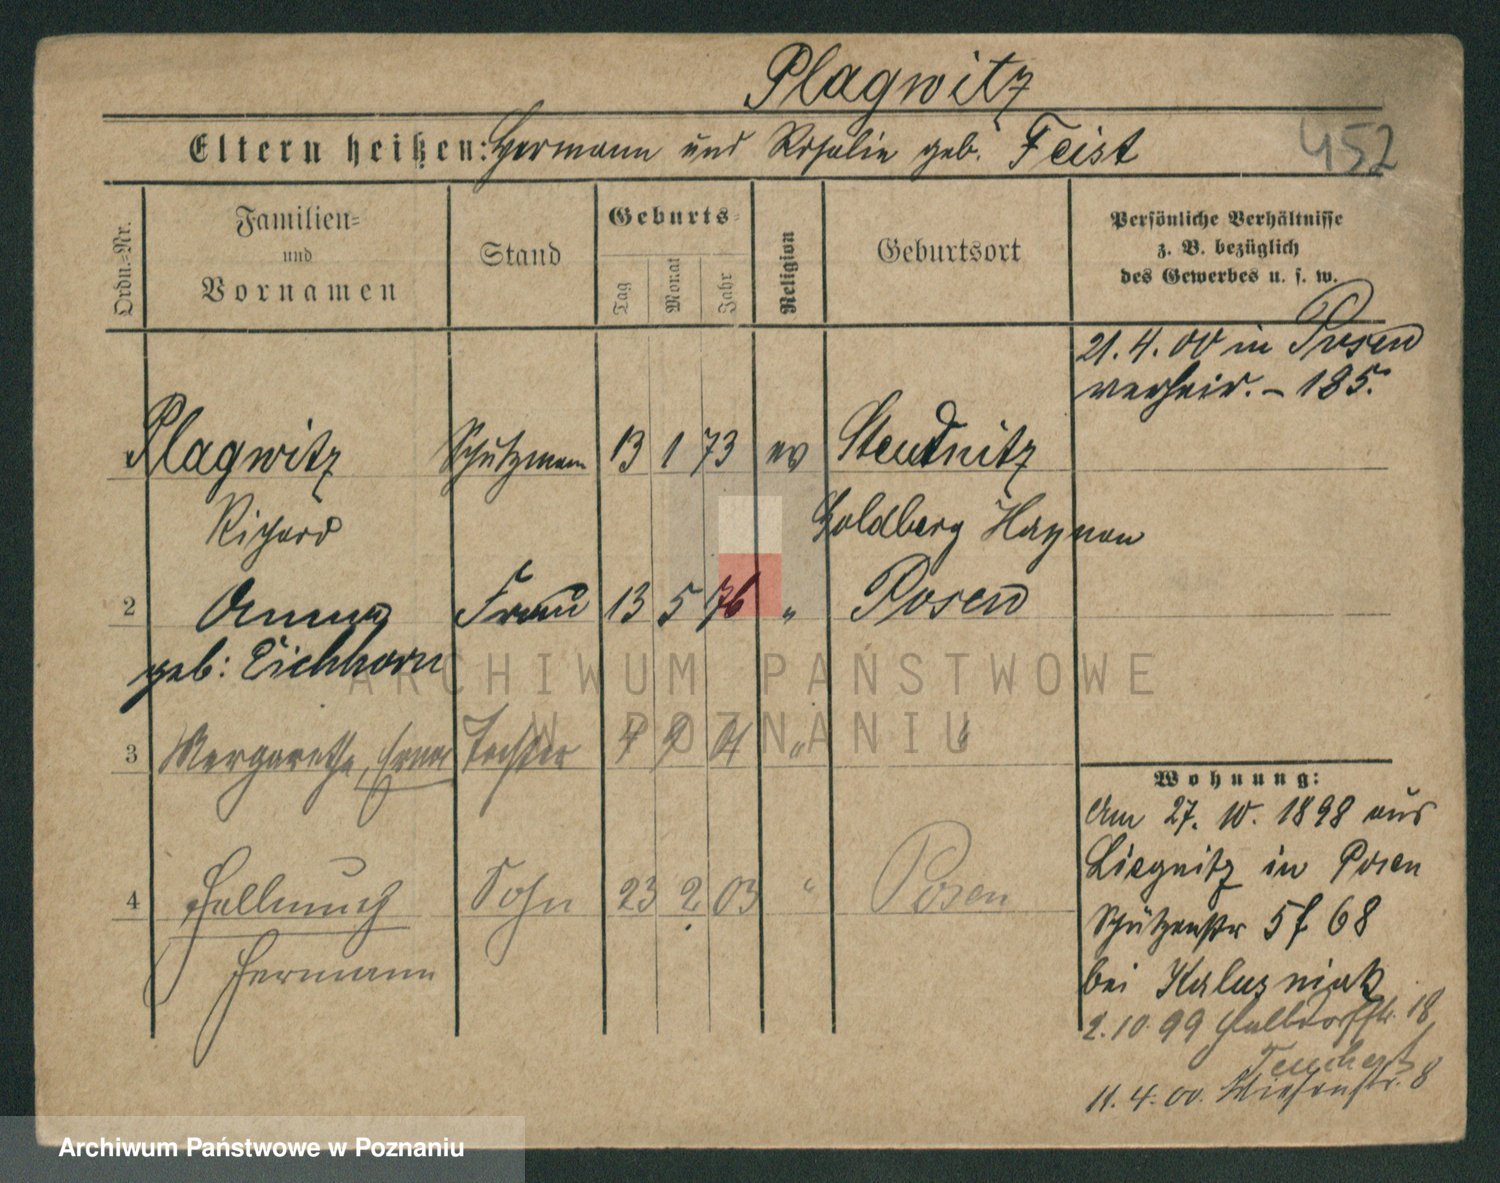 Plagwitz
Eltern heißen: Hermann und Rosalie geb. Feist
452
Ordn.=Nr.
Familien=
und
Vornamen
Stand
Geburts=
Tag
Monat
Jahr
Religion
Geburtsort
Persönliche Verhältnisse
z. B. bezüglich
des Gewerbes u. s. w.
21. 4. 00 in Posen
verheir. – 185.
Plagwitz Schutzmann 13 1 73 ev Steudnitz
Richard Goldberg Haynau
2 Anna Frau 13 5 76 " Posen
geb: Eichhorn
3 Margarethe, Erna Tochter 4 9 01 " "
4 Hellmuth Sohn 23 2 03 " Posen
Hermann
Wohnung:
Am 27. 10. 1898 aus
Liegnitz in Posen
Schützenstr 5 68
bei Kaluzniak
2. 10 99 Halbdorfstr. 18
11. 4. 00. Wiesenstr. 8
ARCHIWUM PAŃSTWOWE
W POZNANIU
Archiwum Państwowe w Poznaniu